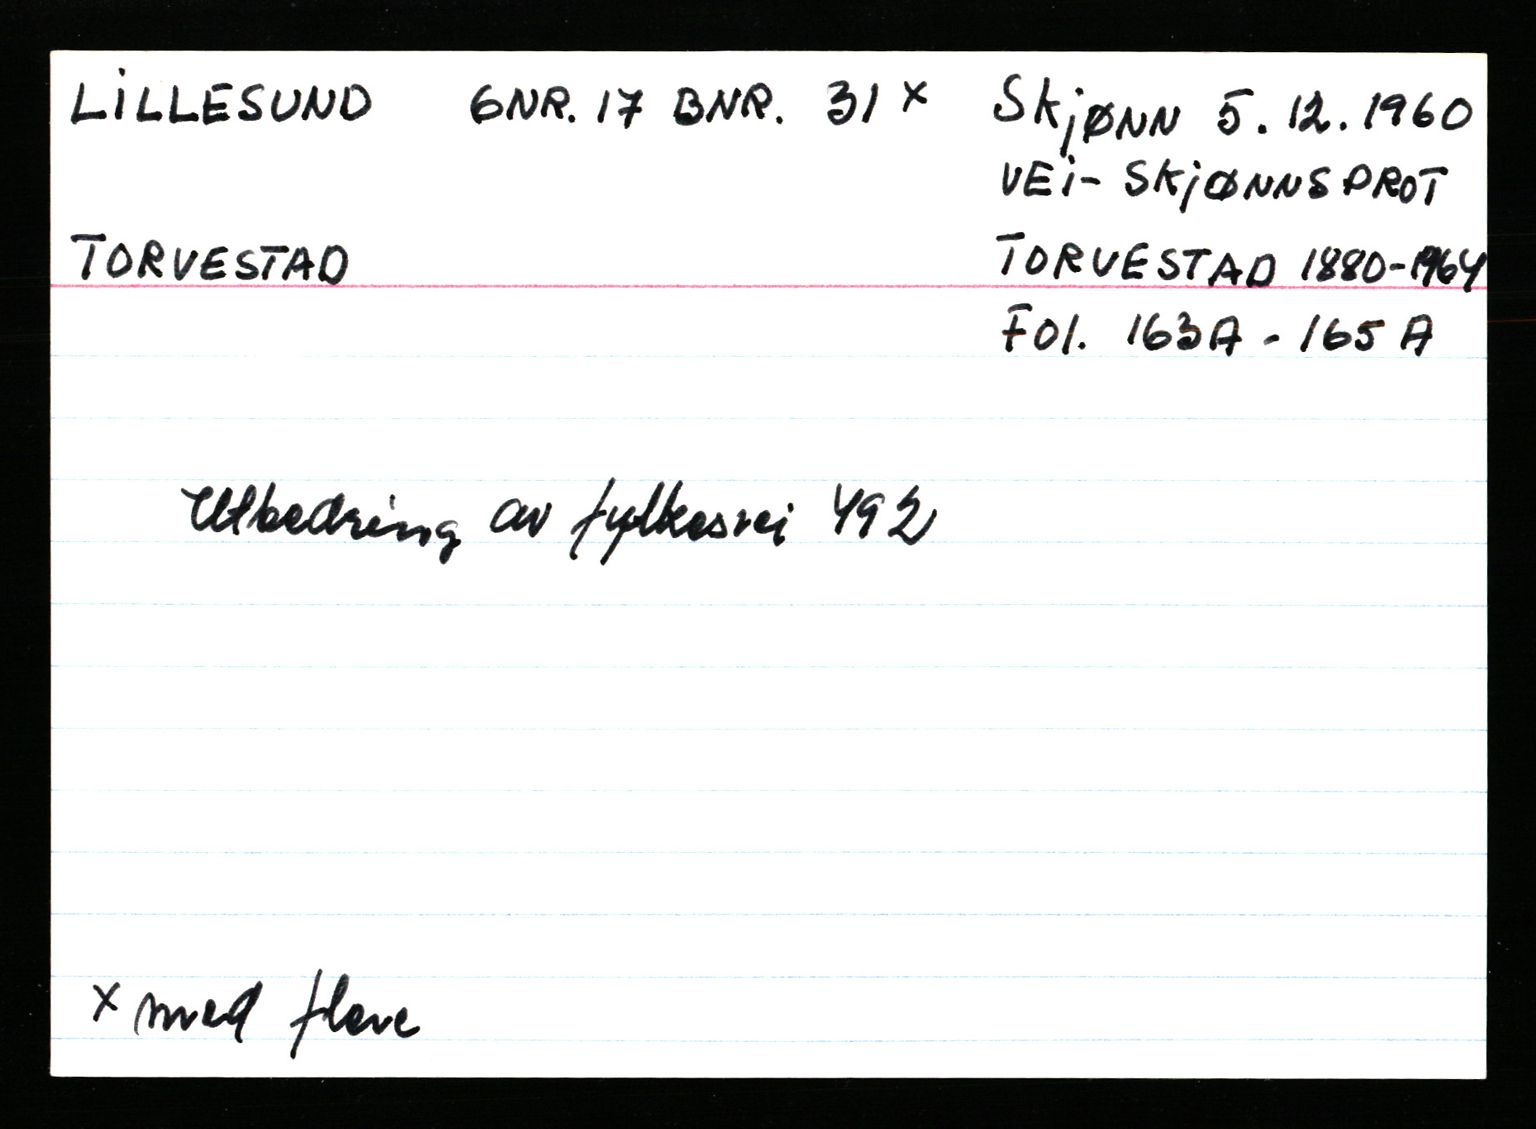 LILLESUND GNR. 17 BNR. 31 x Skjønn 5.12.1960
VEI-SKJØNNSPROT
TORVESTAD TORVESTAD 1880-1964
Fol. 163A - 165A
Utbedring av fylkesvei 492
x med flere